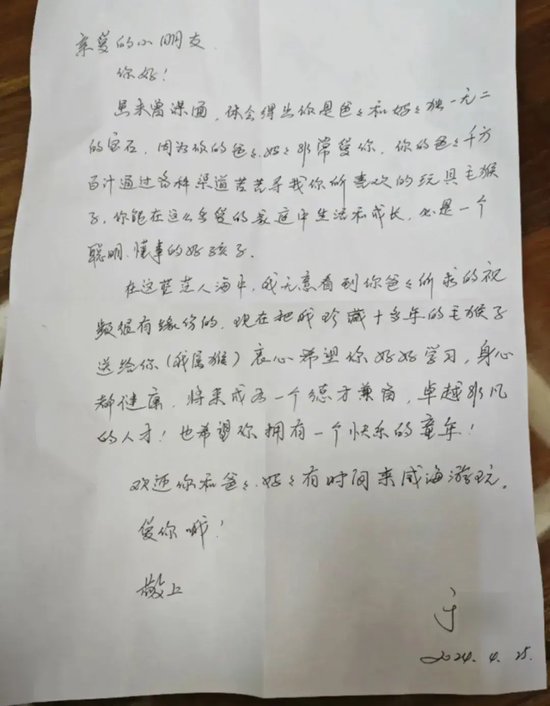 亲爱的小朋友
你好！
虽未曾谋面，体会得出你是爸々和妈々独一无二
的宝石，因为你的爸々、妈々非常爱你，你的爸々千方
百计通过各种渠道苦苦寻找你所喜欢的玩具毛猴
子，你能在这么多爱的家庭中生活和成长，必是一个
聪明、懂事的好孩子。
在这茫茫人海中，我无意看到你爸々所求的视
频很有缘份的，现在把我珍藏十多年的毛猴子
送给你（我属猴）衷心希望你好好学习，身心
都健康，将来成为一个德才兼备，卓越非凡
的人才！也希望你拥有一个快乐的童年！
欢迎你和爸々、妈々有时间来威海游玩。
爱你哦！
敬上
于
2024.4.25.